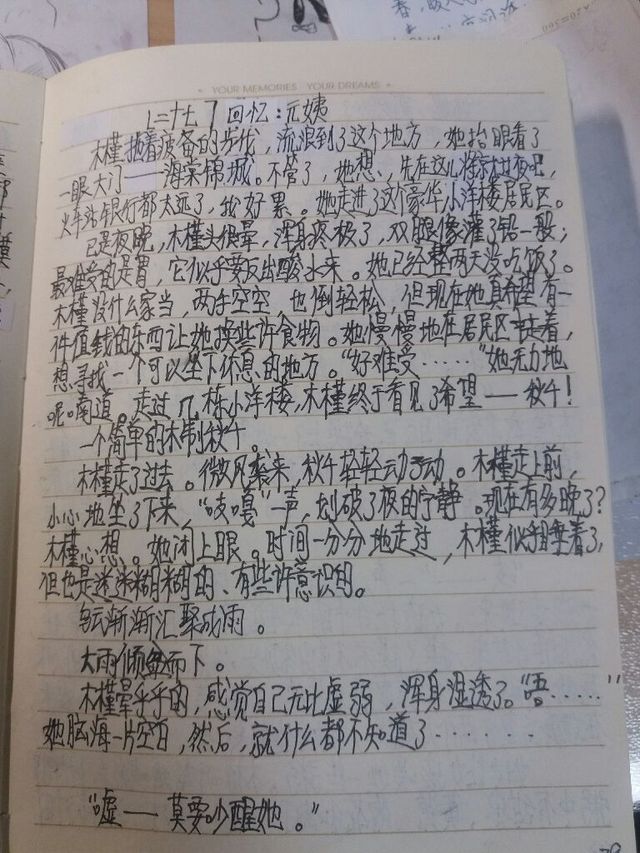 春,
YOUR MEMORIES YOUR DREAMS
二十七 回忆:元姨
木槿拖着疲惫的步伐，流浪到了这个地方，她抬眼看了
一眼大门——海棠锦城。不管了，她想、先在这儿将就过夜吧，
火车站银行都太远了，我好累。她走进了这个豪华小洋楼居民区。
已是夜晚，木槿头很晕，浑身疼极了，双腿像灌了铅一般；
最难受的是胃，它似乎要反出酸水来。她已经整两天没吃饭了。
木槿没什么家当，两手空空，也倒轻松，但现在她真希望有一
件值钱的东西让她换些许食物。她慢慢地在居民区走着，
想寻找一个可以坐下休息的地方。“好难受……”她无力地
呢喃道。走过几栋小洋楼，木槿终于看见了希望——秋千！
一个简单的木制秋千。
木槿走了过去。微风袭来，秋千轻轻动了动。木槿走上前，
小心地坐了下来，“吱嘎”一声，划破了夜的宁静。现在有多晚了？
木槿心想。她闭上眼。时间一分分地走过，木槿似乎睡着了，
但也是迷迷糊糊的、有些许意识的。
乌云渐渐汇聚成雨。
大雨倾盆而下。
木槿晕乎乎的，感觉自己无比虚弱，浑身湿透了。“唔……”
她脑海一片空白，然后，就什么都不知道了.......
“嘘——莫要吵醒她。”